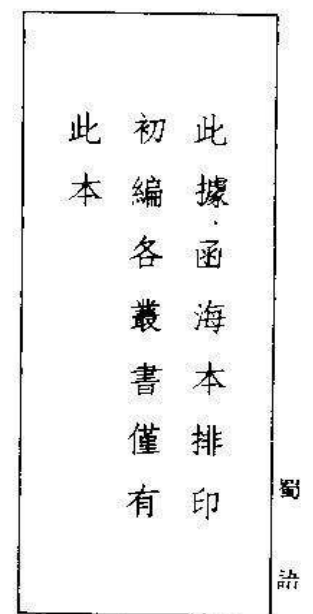 此據函海本排印
初編各叢書僅有
此本
蜀語